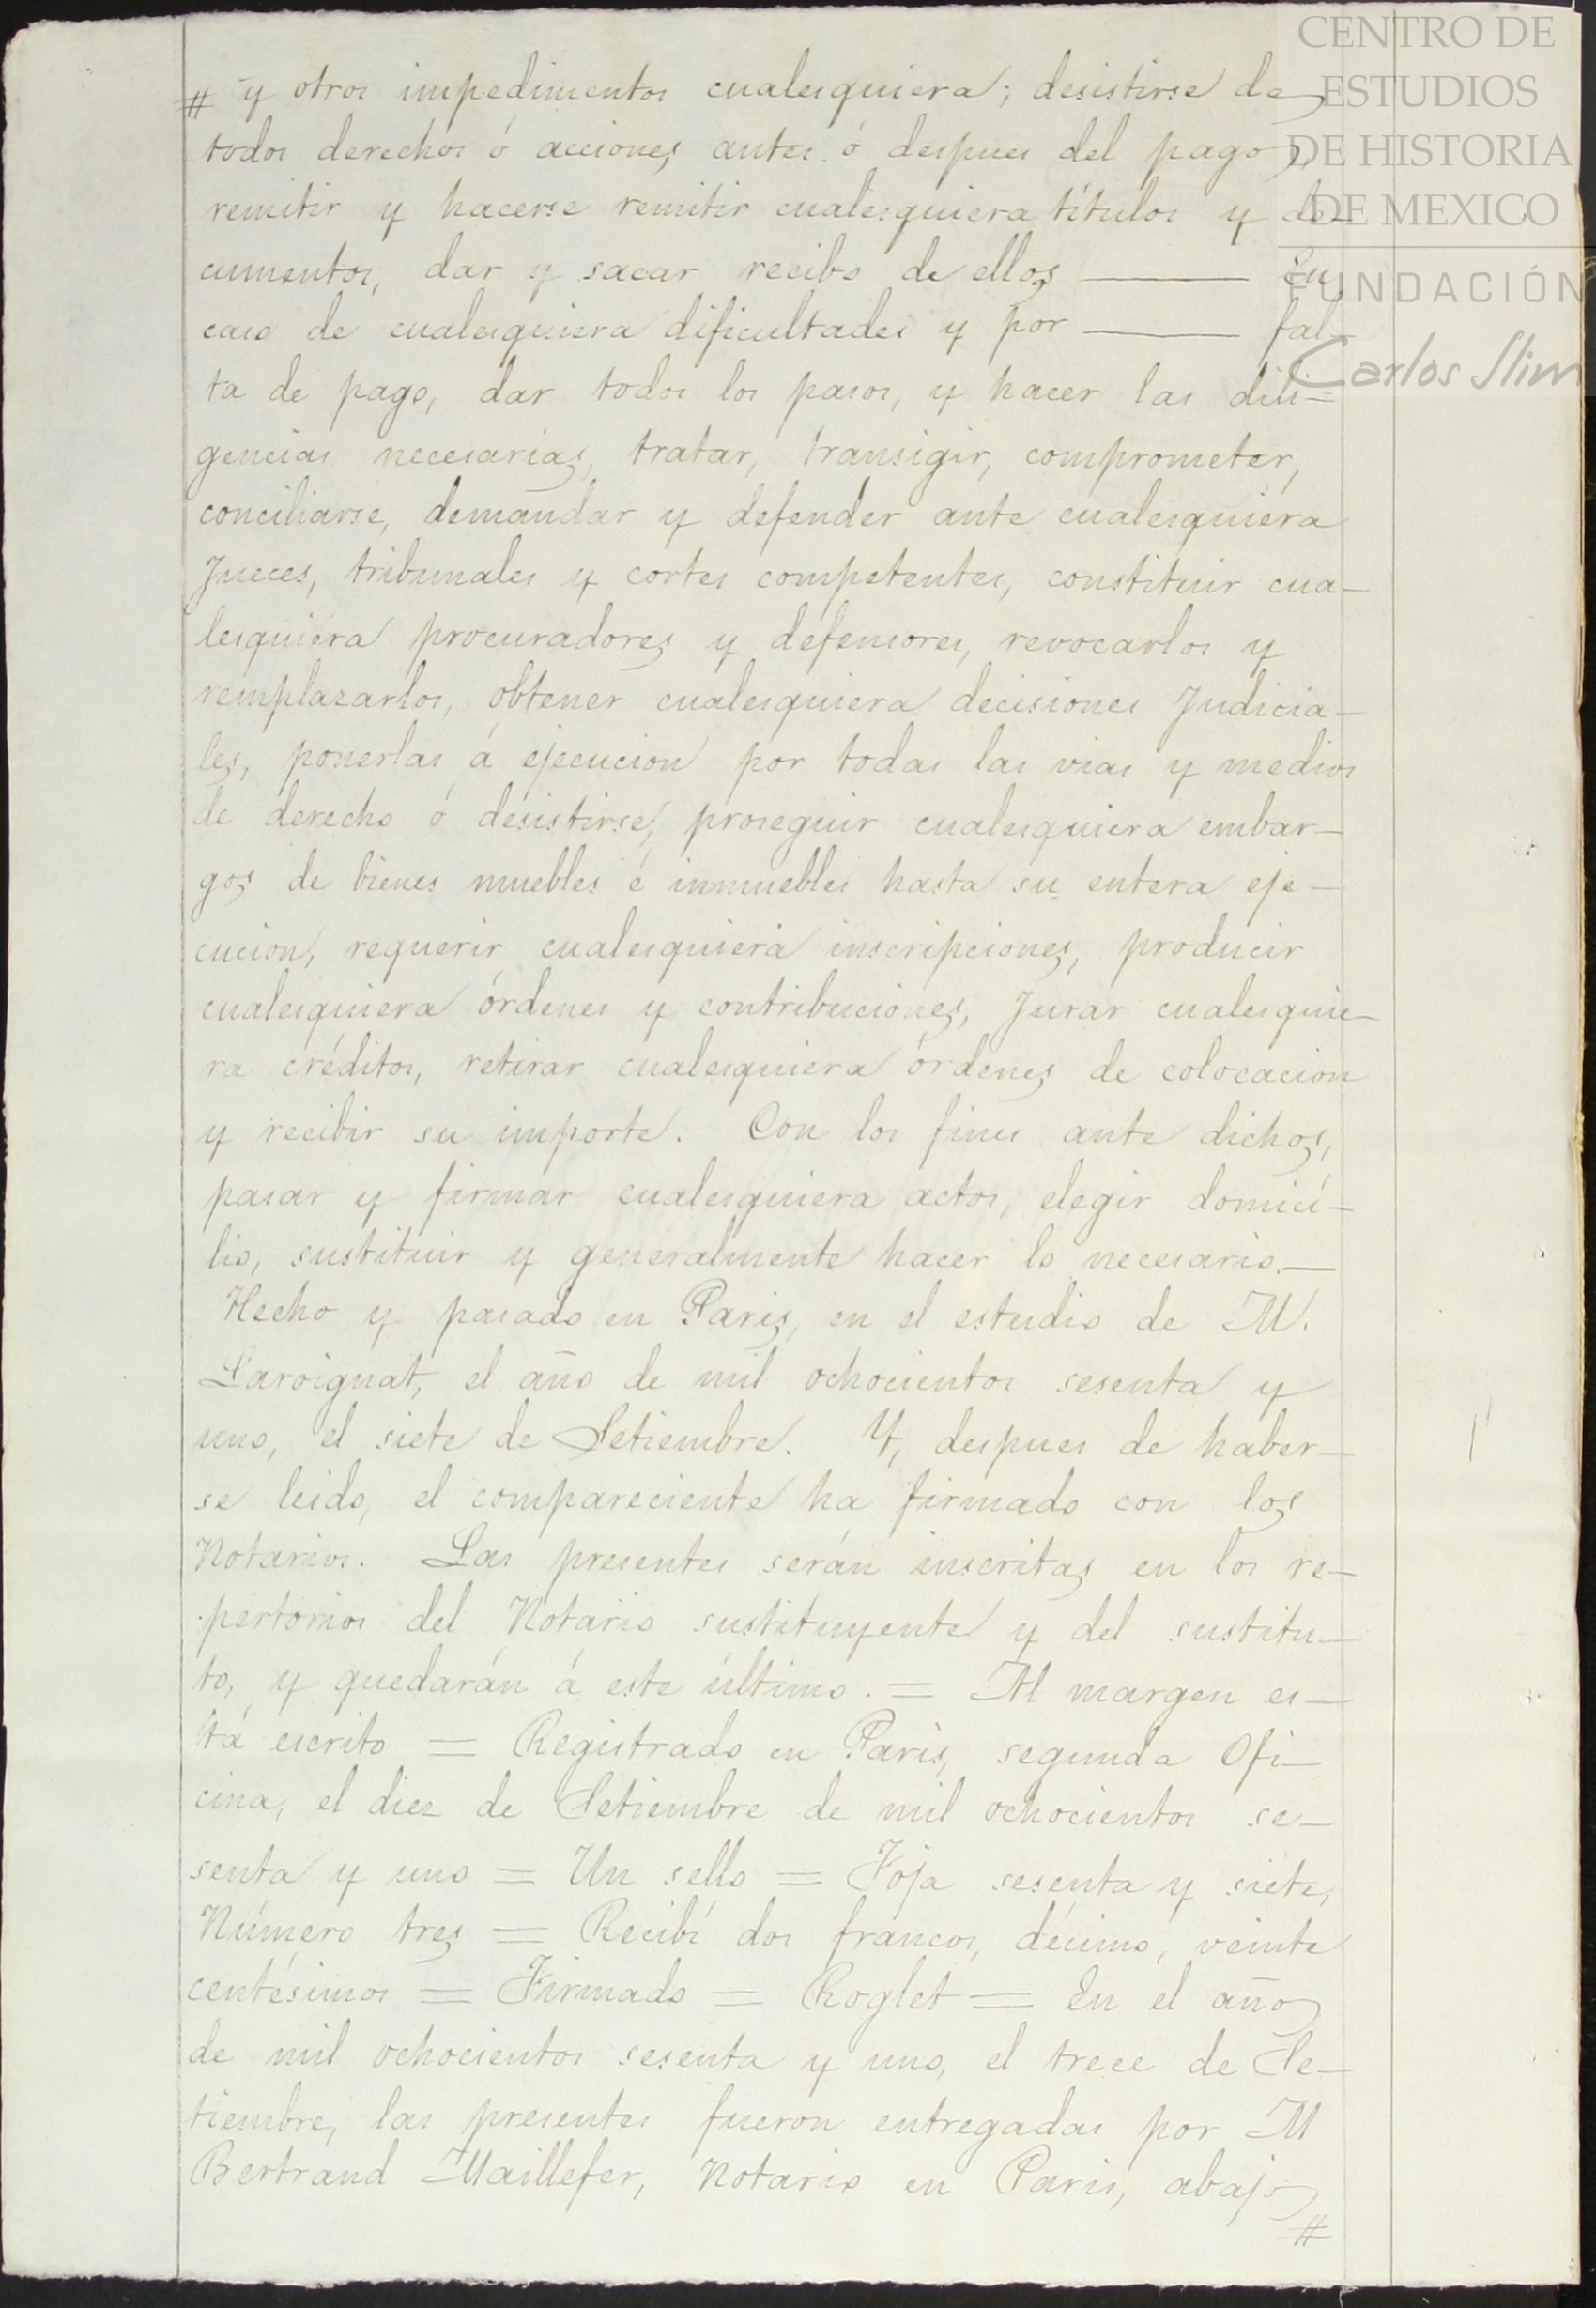 CENTRO DE
ESTUDIOS
DE HISTORIA
DE MEXICO
FUNDACIÓN
Carlos Slim
# y otros impedimentos cualesquiera; desistirse de
todos derechos ó acciones, antes ó despues del pago,
remitir y hacerse remitir cualesquiera títulos y do-
cumentos, dar y sacar recibo de ellos ——— En
caso de cualesquiera dificultades y por ——— fal-
ta de pago, dar todos los pasos, y hacer las dili=
gencias necesarias, tratar, transigir, comprometer,
conciliarse, demandar y defender ante cualesquiera
Jueces, tribunales y cortes competentes, constituir cua-
lesquiera procuradores y defensores, revocarlos y
remplazarlos, obtener cualesquiera decisiones Judicia-
les, ponerlas á ejecucion por todas las vias y medios
de derecho ó desistirse, proseguir cualesquiera embar-
gos de bienes muebles é inmuebles hasta su entera eje-
cucion, requerir cualesquiera inscripciones, producir
cualesquiera órdenes y contribuciones, Jurar cualesquie-
ra créditos, retirar cualesquiera órdenes de colocacion
y recibir su importe. Con los fines ante dichos,
pasar y firmar cualesquiera actos, elegir domici-
lio, sustituir y generalmente hacer lo necesario.—
Hecho y pasado en Paris, en el estudio de M.
Lavoignat, el año de mil ochocientos sesenta y
uno, el siete de Setiembre. Y, despues de haber-
se leido, el compareciente ha firmado con los
Notarios. Las presentes serán inscritas en los re-
pertorios del Notario sustituyente y del sustitu-
to, y quedarán á este último. = Al margen es-
tá escrito = Registrado en Paris, segunda Ofi-
cina, el diez de Setiembre de mil ochocientos se-
senta y uno = Un sello = Foja sesenta y siete,
Número tres = Recibí dos francos, décimo, veinte
centésimos = Firmado = Roglet = En el año
de mil ochocientos sesenta y uno, el trece de Se-
tiembre, las presentes fueron entregadas por M
Bertrand Maillefer, Notario en Paris, abajo
#